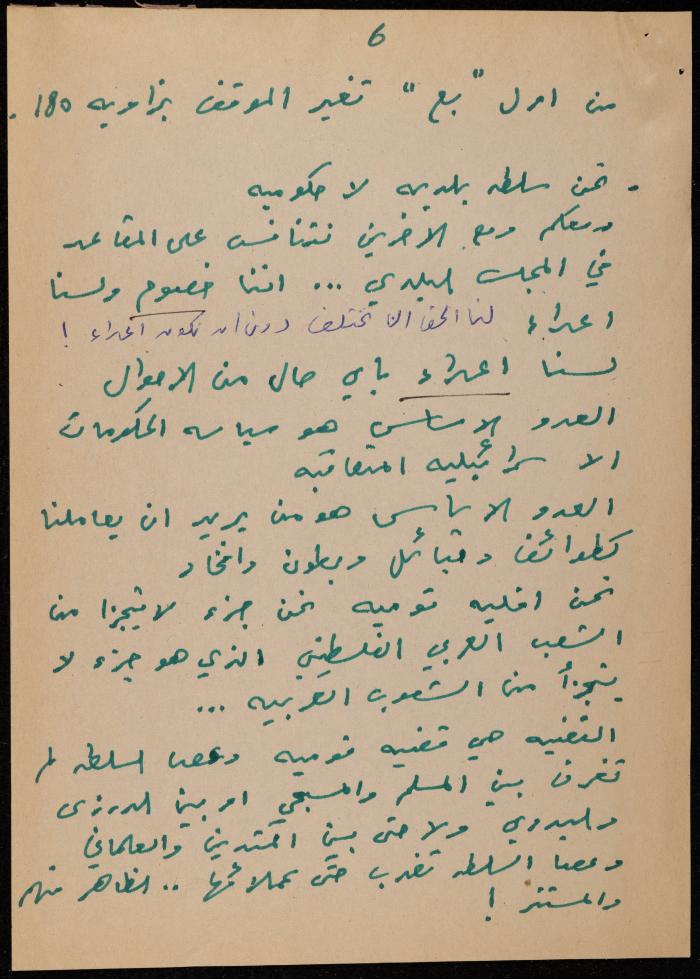 6
من اول "بع" تغير الموقف بزاويه 180.
- نحن سلطه بلديه لا حكوميه
ومعكم ومع الاخرين نتنافس على المقاعد
في المجلس البلدي ... اننا خصوم ولسنا
اعداء لنا الحق ان نختلف دون ان نكون اعداء !
لسنا اعداء باي حال من الاحوال
العدو الاساسي هو سياسه الحكومات
الاسرائيليه المتعاقبه
العدو الاساسي هو من يريد ان يعاملنا
كطوائف وقبائل وبطون وافخاد
نحن اقليه قوميه نحن جزء لا يتجزا من
الشعب العربي الفلسطيني الذي هو جزء لا
يتجزأ من الشعوب العربيه ...
القضيه هي قضيه قوميه وعصا السلطه لم
تفرق بين المسلم والمسيحي او بين الدرزي
والبدوي ولا حتى بين المتدين والعلماني
وعصا السلطه تضرب حتى عملائها .. الظاهر منهم
والمستتر !